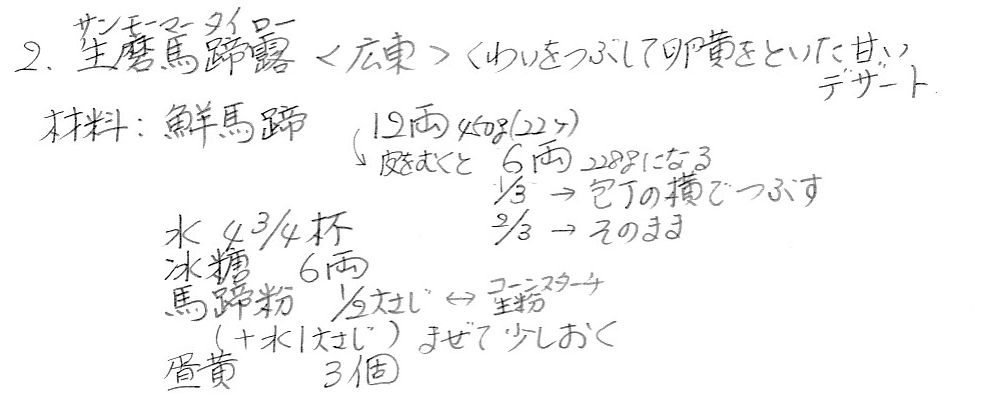 サンモーマータイロー
2. 生磨馬蹄露 <広東> くわいをつぶして卵黄をといた甘い
デザート
材料: 鮮馬蹄 12両 450g(22ケ)
皮をむくと 6両 228gになる
1/3 → 包丁の横でつぶす
水 4 3/4杯 2/3 → そのまま
氷糖 6両
馬蹄粉 1/2大さじ ↔ コーンスターチ 生粉
(+水1大さじ) まぜて少しおく
蛋黄 3個